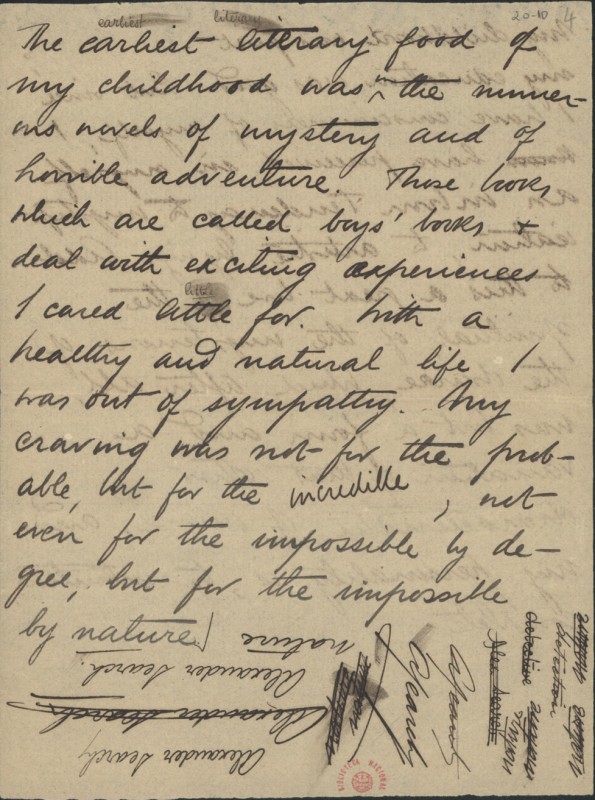 earliest literary 20-10 4
The earliest literary food of
my childhood was in the numer-
ous novels of mystery and of
horrible adventure. Those books
which are called boys' books &
deal with exciting experiences
little
I cared little for. With a
healthy and natural life I
was out of sympathy. My
craving was not for the prob-
able, but for the incredible, not
even for the impossible by de-
gree, but for the impossible
by nature
nature
Alexander Search.
Alexander Search
Alexander Search
Search
Search
detective
BIBLIOTECA NACIONAL